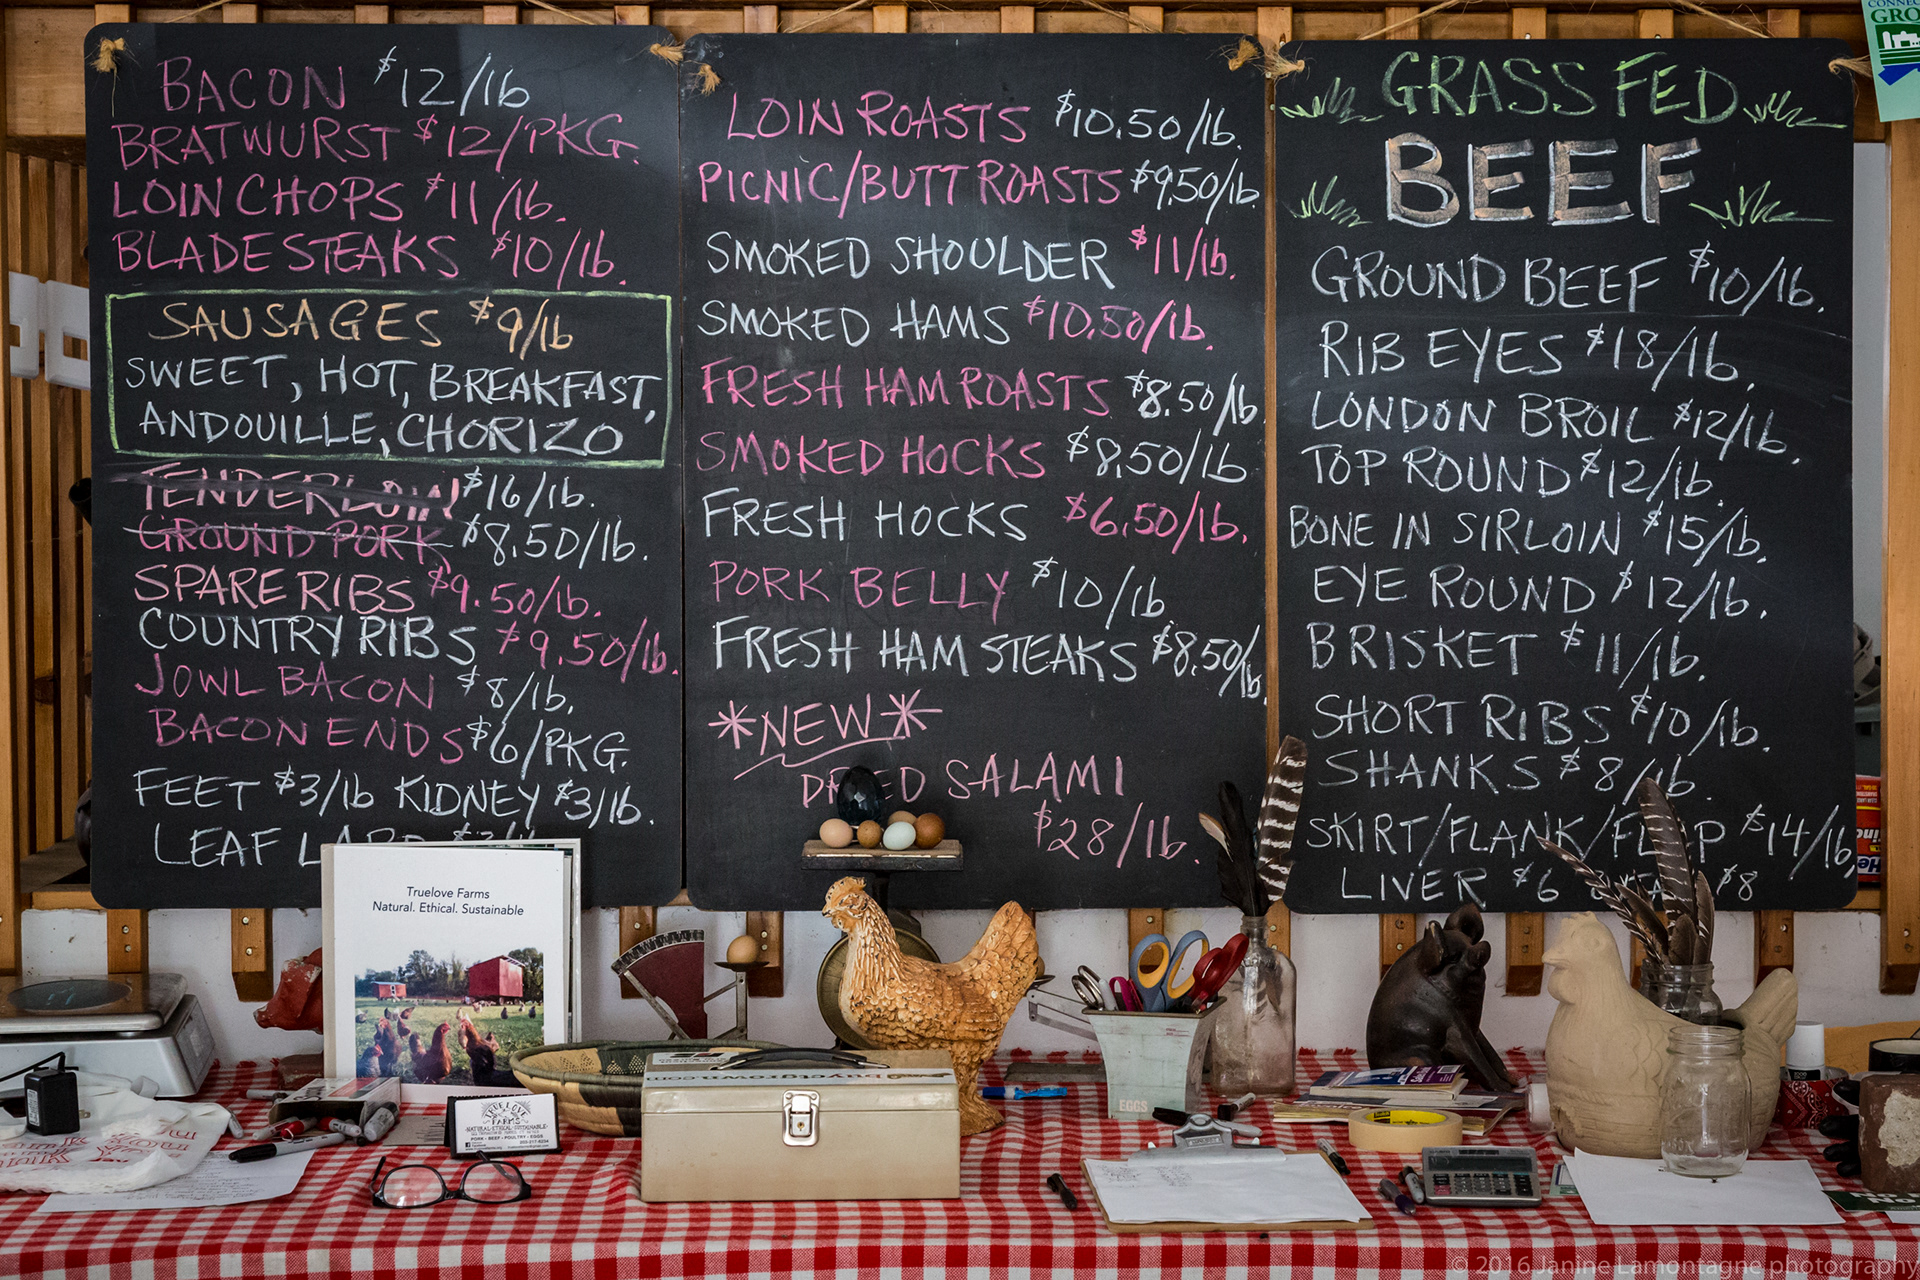 BACON $12/lb
BRATWURST $12/PKG.
LOIN CHOPS $11/lb.
BLADE STEAKS $10/lb.
SAUSAGES $9/lb
SWEET, HOT, BREAKFAST,
ANDOUILLE, CHORIZO
TENDERLOIN $16/lb.
GROUND PORK $8.50/lb.
SPARE RIBS $9.50/lb.
COUNTRY RIBS $9.50/lb.
JOWL BACON $8/lb.
BACON ENDS $6/PKG.
FEET $3/lb KIDNEY $3/lb.
LEAF LARD
LOIN ROASTS $10.50/lb.
PICNIC/BUTT ROASTS $9.50/lb.
SMOKED SHOULDER $11/lb.
SMOKED HAMS $10.50/lb.
FRESH HAM ROASTS $8.50/lb
SMOKED HOCKS $8.50/lb
FRESH HOCKS $6.50/lb.
PORK BELLY $10/lb
FRESH HAM STEAKS $8.50/lb.
*NEW*
DRIED SALAMI
$28/lb.
GRASS FED
BEEF
GROUND BEEF $10/lb.
RIB EYES $18/lb.
LONDON BROIL $12/lb.
TOP ROUND $12/lb.
BONE IN SIRLOIN $15/lb.
EYE ROUND $12/lb.
BRISKET $11/lb.
SHORT RIBS $10/lb.
SHANKS $8/lb.
SKIRT/FLANK/FLAP $14/lb.
LIVER $6 $8
Truelove Farms
Natural. Ethical. Sustainable
TRUELOVE
FARMS
NATURAL·ETHICAL·SUSTAINABLE
PORK · BEEF · POULTRY · EGGS
EGGS
© 2016 Janine Lamontagne photography